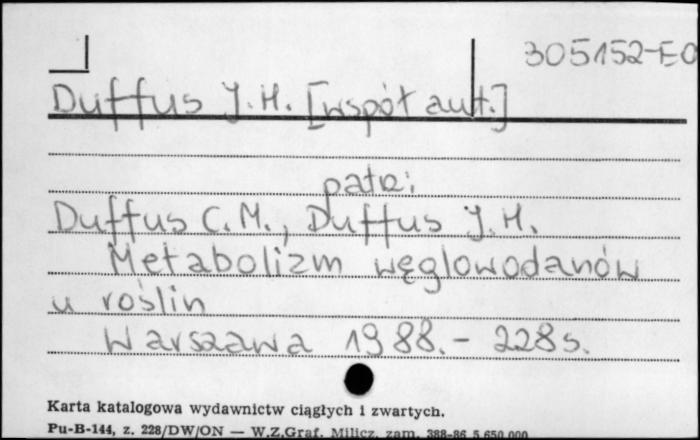 305152-EO
Duffus J.H. [współ aut.]
patrz:
Duffus C.M., Duffus J.H.
Metabolizm węglowodanów
u roślin
Warszawa 1988. - 228 s.
Karta katalogowa wydawnictw ciągłych i zwartych.
Pu-B-144, z. 228/DW/ON — W.Z.Graf. Milicz, zam. 388-86 5.650.000